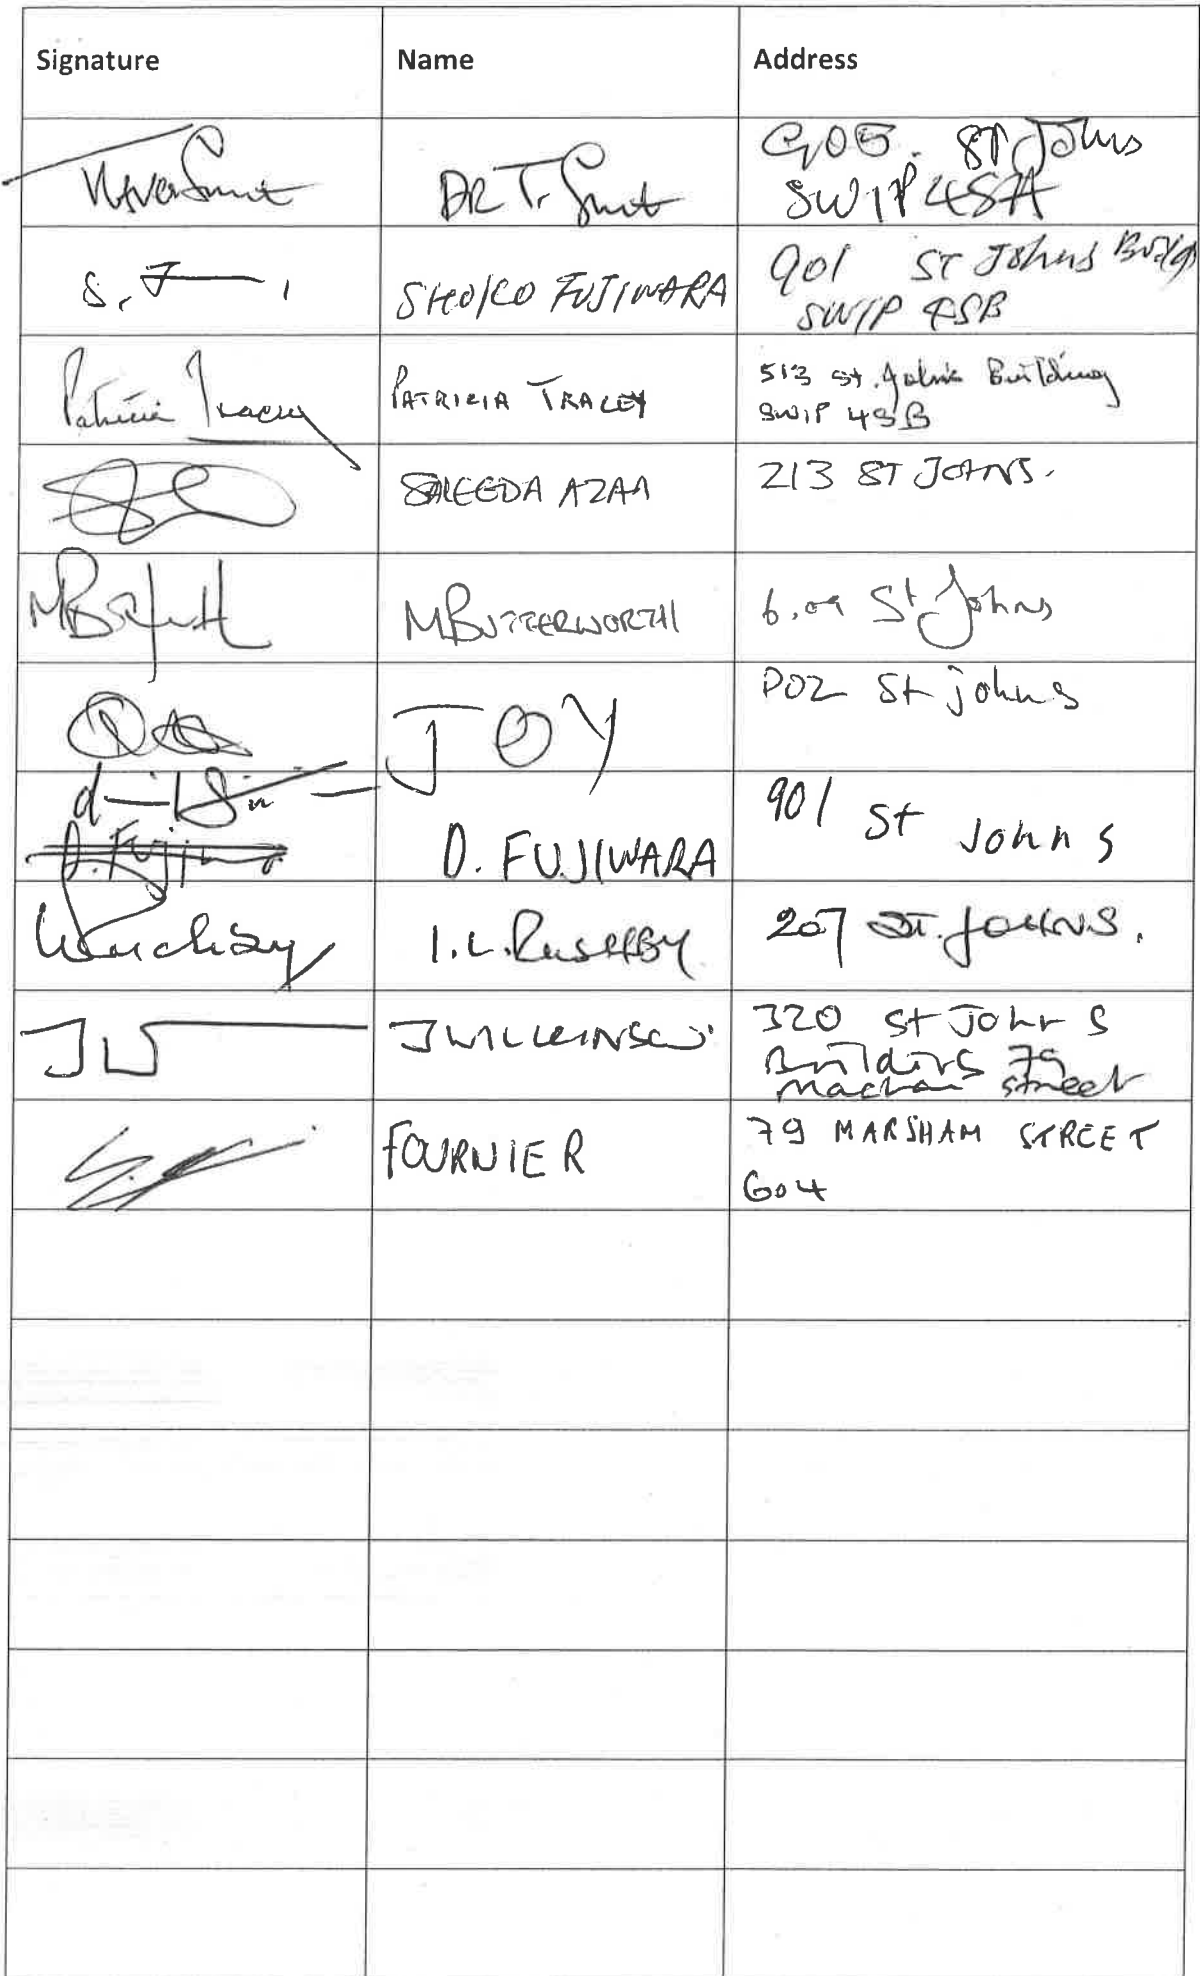 Signature Name Address
G05. St Johns
DR T. Smit SW1P 4SA
S. F
SHOKO FUJIWARA
901 ST Johns Buildg
SW1P 4SB
Patricia Tracey
PATRICIA TRACEY
513 St. John's Building
SW1P 4SB
SAEEDA AZAM
213 ST JOHNS.
M BUTTERWORTH
6.09 St Johns
JOY
P02 St johns
D. Fujiwara
D. FUJIWARA
901 St Johns
207 ST. JOHNS.
JW
J WILKINSON
320 St John s
Buildings 79
street
FOURNIER
79 MARSHAM STREET
G04